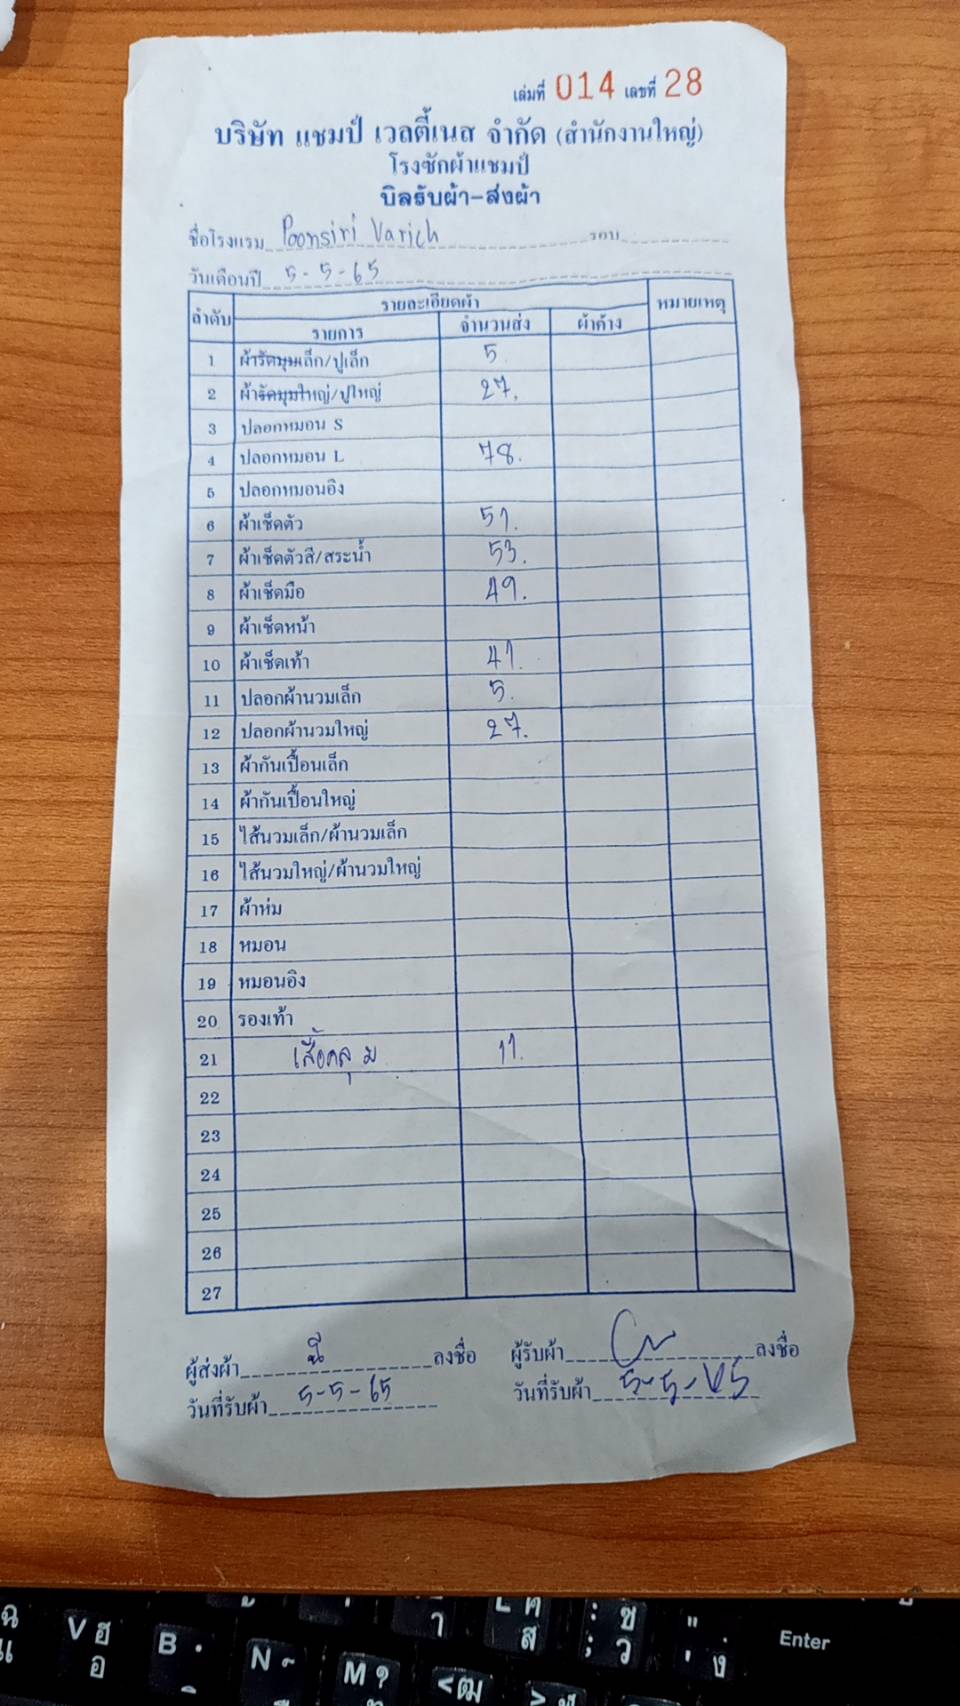 เล่มที่ 014 เลขที่ 28
บริษัท แชมป์ เวลตี้เนส จำกัด (สำนักงานใหญ่)
โรงซักผ้าแชมป์
บิลรับผ้า-ส่งผ้า
ชื่อโรงแรม Poonsiri Varich รอบ
วันเดือนปี 5-5-65
ลำดับ รายละเอียดผ้า หมายเหตุ
รายการ จำนวนส่ง ผ้าค้าง
1 ผ้ารัดมุมเล็ก/ปูเล็ก 5
2 ผ้ารัดมุมใหญ่/ปูใหญ่ 27.
3 ปลอกหมอน S
4 ปลอกหมอน L 78.
5 ปลอกหมอนอิง
6 ผ้าเช็ดตัว 51.
7 ผ้าเช็ดตัวสี/สระน้ำ 53.
8 ผ้าเช็ดมือ 49.
9 ผ้าเช็ดหน้า
10 ผ้าเช็ดเท้า 41.
11 ปลอกผ้านวมเล็ก 5.
12 ปลอกผ้านวมใหญ่ 27.
13 ผ้ากันเปื้อนเล็ก
14 ผ้ากันเปื้อนใหญ่
15 ไส้นวมเล็ก/ผ้านวมเล็ก
16 ไส้นวมใหญ่/ผ้านวมใหญ่
17 ผ้าห่ม
18 หมอน
19 หมอนอิง
20 รองเท้า
21 เสื้อคลุม 11.
22
23
24
25
26
27
ผู้ส่งผ้า ลงชื่อ ผู้รับผ้า ลงชื่อ
วันที่รับผ้า 5-5-65 วันที่รับผ้า 5-5-65
V ฮ อ
B
N
M
Enter